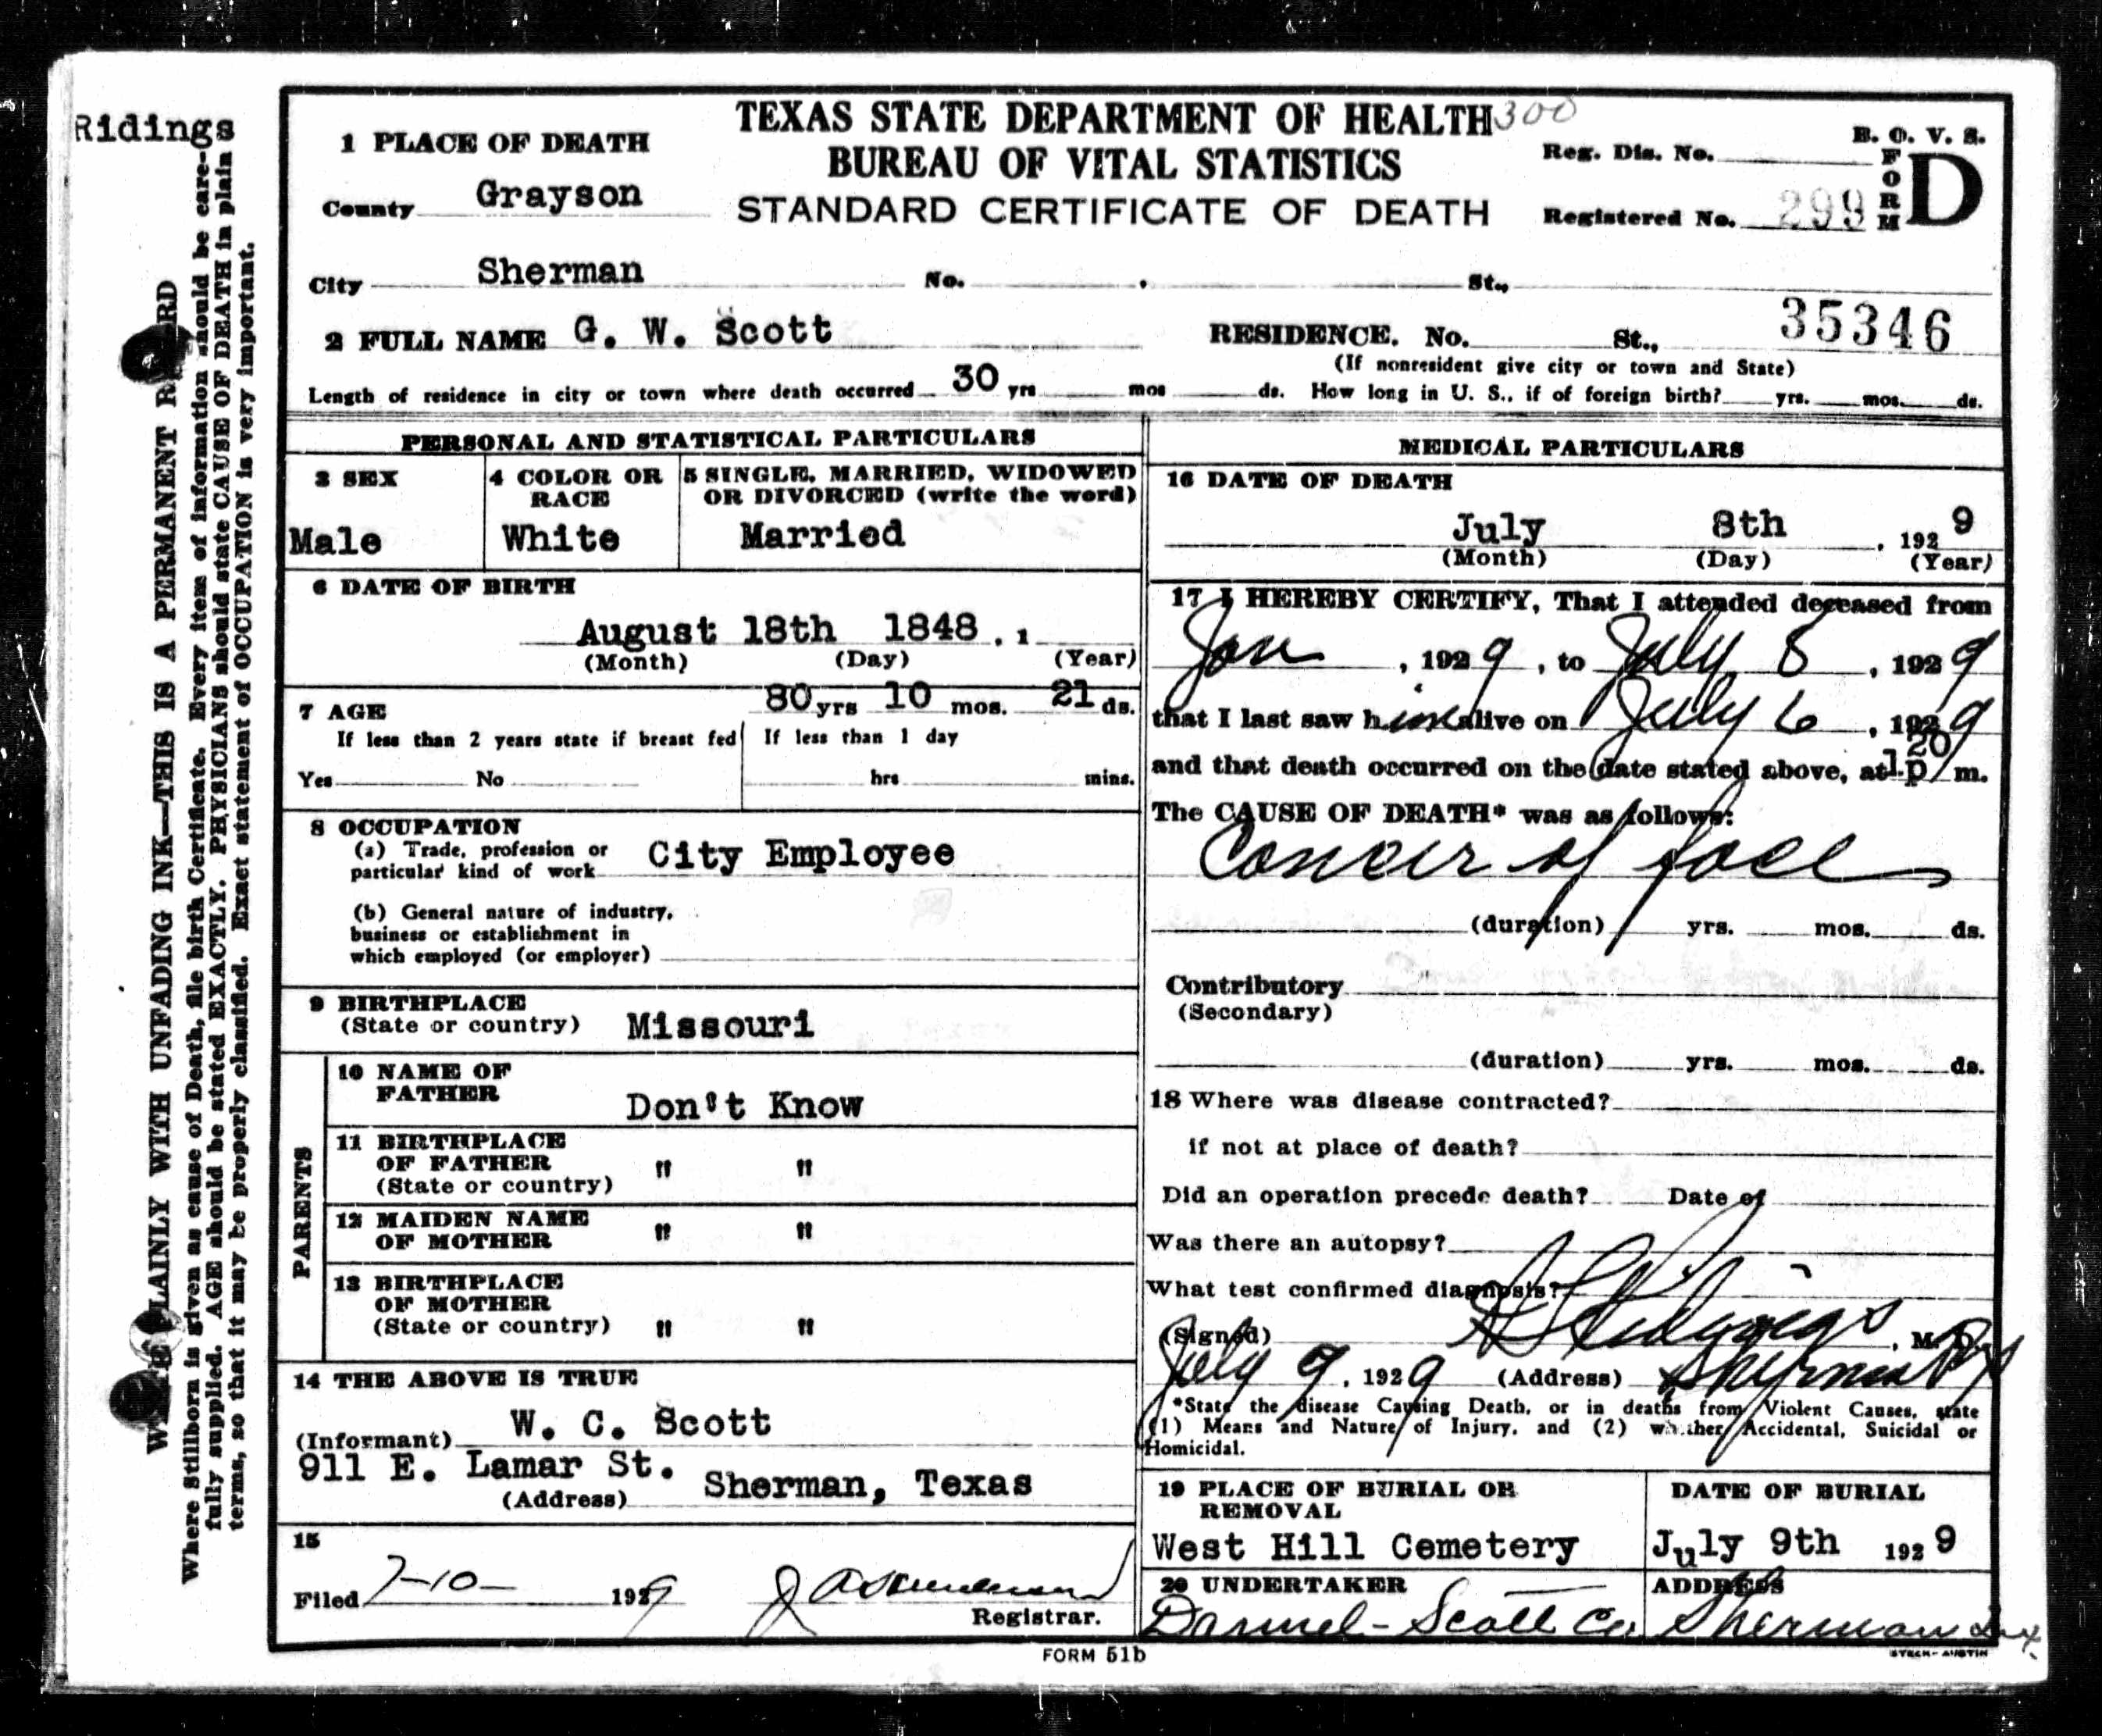 Ridings
WRITE PLAINLY WITH UNFADING INK—THIS IS A PERMANENT RECORD
Where Stillborn is given as cause of Death, file birth Certificate. Every item of information should be care-
fully supplied. AGE should be stated EXACTLY. PHYSICIANS should state CAUSE OF DEATH in plain
terms, so that it may be properly classified. Exact statement of OCCUPATION is very important.
TEXAS STATE DEPARTMENT OF HEALTH 300
BUREAU OF VITAL STATISTICS
STANDARD CERTIFICATE OF DEATH
B. O. V. S.
FORM D
Reg. Dis. No.
Registered No. 299
1 PLACE OF DEATH
County Grayson
City Sherman No. St.,
2 FULL NAME G. W. Scott RESIDENCE. No. St., 35346
(If nonresident give city or town and State)
Length of residence in city or town where death occurred 30 yrs mos ds. How long in U. S., if of foreign birth? yrs. mos. ds.
PERSONAL AND STATISTICAL PARTICULARS
3 SEX
Male
4 COLOR OR RACE
White
5 SINGLE, MARRIED, WIDOWED
OR DIVORCED (write the word)
Married
6 DATE OF BIRTH
August 18th 1848 , 1
(Month) (Day) (Year)
7 AGE 80 yrs 10 mos. 21 ds.
If less than 2 years state if breast fed If less than 1 day
Yes No hrs mins.
8 OCCUPATION
(a) Trade, profession or
particular kind of work City Employee
(b) General nature of industry,
business or establishment in
which employed (or employer)
9 BIRTHPLACE
(State or country) Missouri
PARENTS
10 NAME OF
FATHER Don't Know
11 BIRTHPLACE
OF FATHER " "
(State or country)
12 MAIDEN NAME
OF MOTHER " "
13 BIRTHPLACE
OF MOTHER
(State or country) " "
14 THE ABOVE IS TRUE
(Informant) W. C. Scott
911 E. Lamar St. Sherman, Texas
(Address)
15
Filed 7-10- 1929
Registrar.
MEDICAL PARTICULARS
16 DATE OF DEATH
July 8th , 192 9
(Month) (Day) (Year)
17 I HEREBY CERTIFY, That I attended deceased from
Jan , 1929 , to July 8 , 1929
that I last saw him alive on July 6 , 1929
and that death occurred on the date stated above, at 1.20 p m.
The CAUSE OF DEATH* was as follows:
Cancer of face
(duration) yrs. mos. ds.
Contributory
(Secondary)
(duration) yrs. mos. ds.
18 Where was disease contracted?
if not at place of death?
Did an operation precede death? Date of
Was there an autopsy?
What test confirmed diagnosis?
(Signed) Ridings , M. D.
July 9, 1929 (Address) Sherman Tex
*State the disease Causing Death, or in deaths from Violent Causes, state
(1) Means and Nature of Injury, and (2) whether Accidental, Suicidal or
Homicidal.
19 PLACE OF BURIAL OR
REMOVAL
West Hill Cemetery
DATE OF BURIAL
July 9th 1929
20 UNDERTAKER
Dannel-Scott Co.
ADDRESS
Sherman Tex.
FORM 51b
STECK-AUSTIN